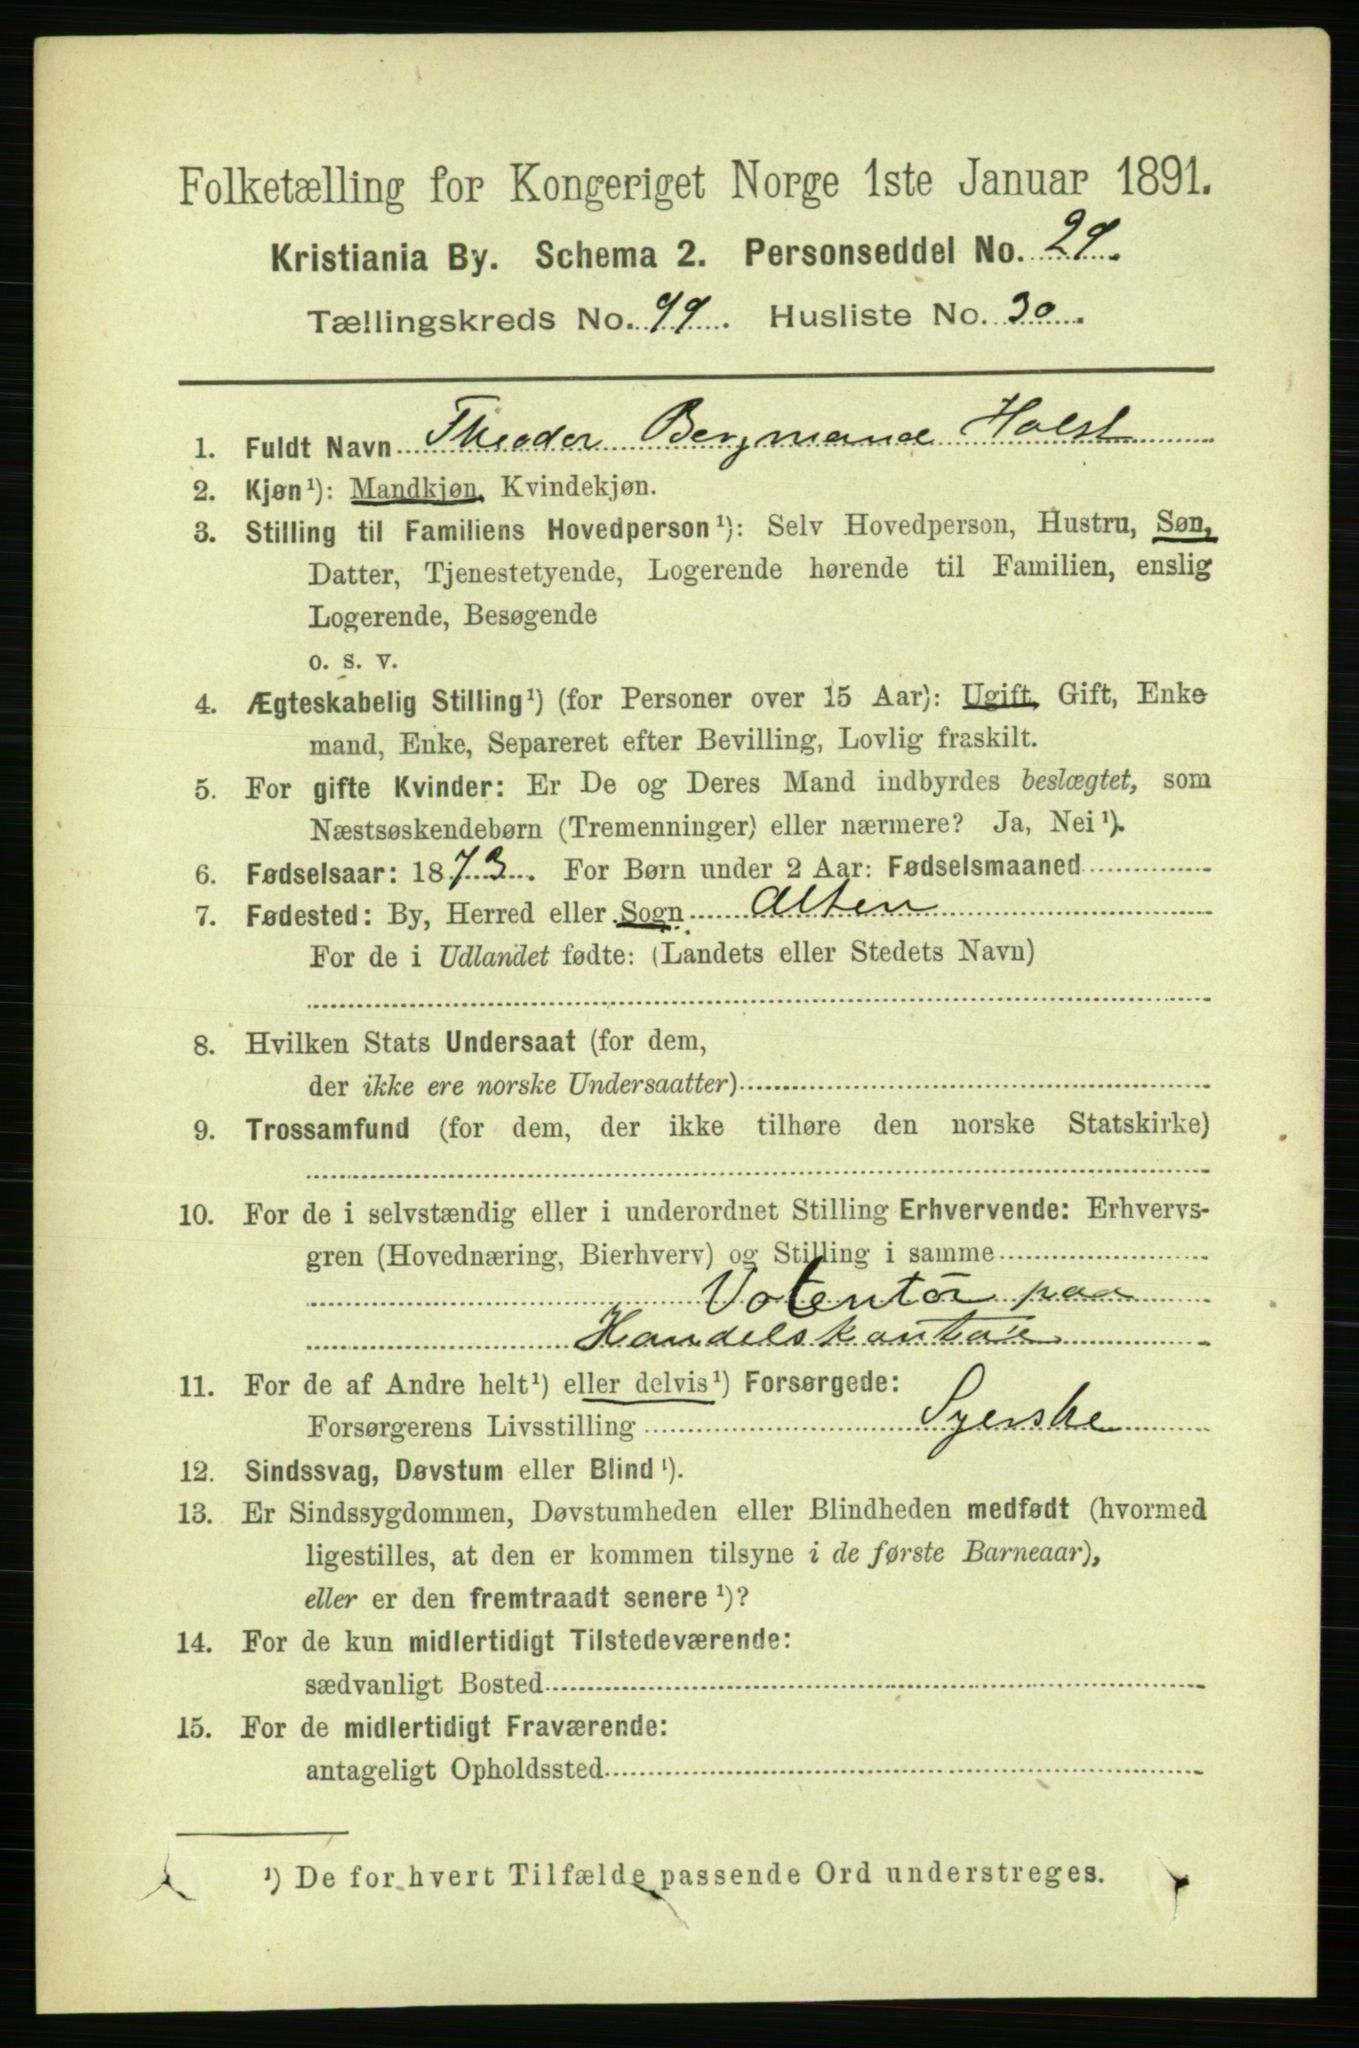 Folketælling for Kongeriget Norge 1ste Januar 1891.
Kristiania By. Schema 2. Personseddel No. 29.
Tællingskreds No. 99. Husliste No. 30.
1. Fuldt Navn Theodor Bergmann Holst
2. Kjøn¹): Mandkjøn, Kvindekjøn.
3. Stilling til Familiens Hovedperson¹): Selv Hovedperson, Hustru, Søn,
Datter, Tjenestetyende, Logerende hørende til Familien, enslig
Logerende, Besøgende
o. s. v.
4. Ægteskabelig Stilling¹) (for Personer over 15 Aar): Ugift, Gift, Enke
mand, Enke, Separeret efter Bevilling, Lovlig fraskilt.
5. For gifte Kvinder: Er De og Deres Mand indbyrdes beslægtet, som
Næstsøskendebørn (Tremenninger) eller nærmere? Ja, Nei¹).
6. Fødselsaar: 1873. For Børn under 2 Aar: Fødselsmaaned
7. Fødested: By, Herred eller Sogn Alten
For de i Udlandet fødte: (Landets eller Stedets Navn)
8. Hvilken Stats Undersaat (for dem,
der ikke ere norske Undersaatter)
9. Trossamfund (for dem, der ikke tilhøre den norske Statskirke)
10. For de i selvstændig eller i underordnet Stilling Erhvervende: Erhvervs-
gren (Hovednæring, Bierhverv) og Stilling i samme
Volentør paa
Handelskontor
11. For de af Andre helt¹) eller delvis¹) Forsørgede:
Forsørgerens Livsstilling Syerske
12. Sindssvag, Døvstum eller Blind¹).
13. Er Sindssygdommen, Døvstumheden eller Blindheden medfødt (hvormed
ligestilles, at den er kommen tilsyne i de første Barneaar),
eller er den fremtraadt senere¹)?
14. For de kun midlertidigt Tilstedeværende:
sædvanligt Bosted
15. For de midlertidigt Fraværende:
antageligt Opholdssted
¹) De for hvert Tilfælde passende Ord understreges.